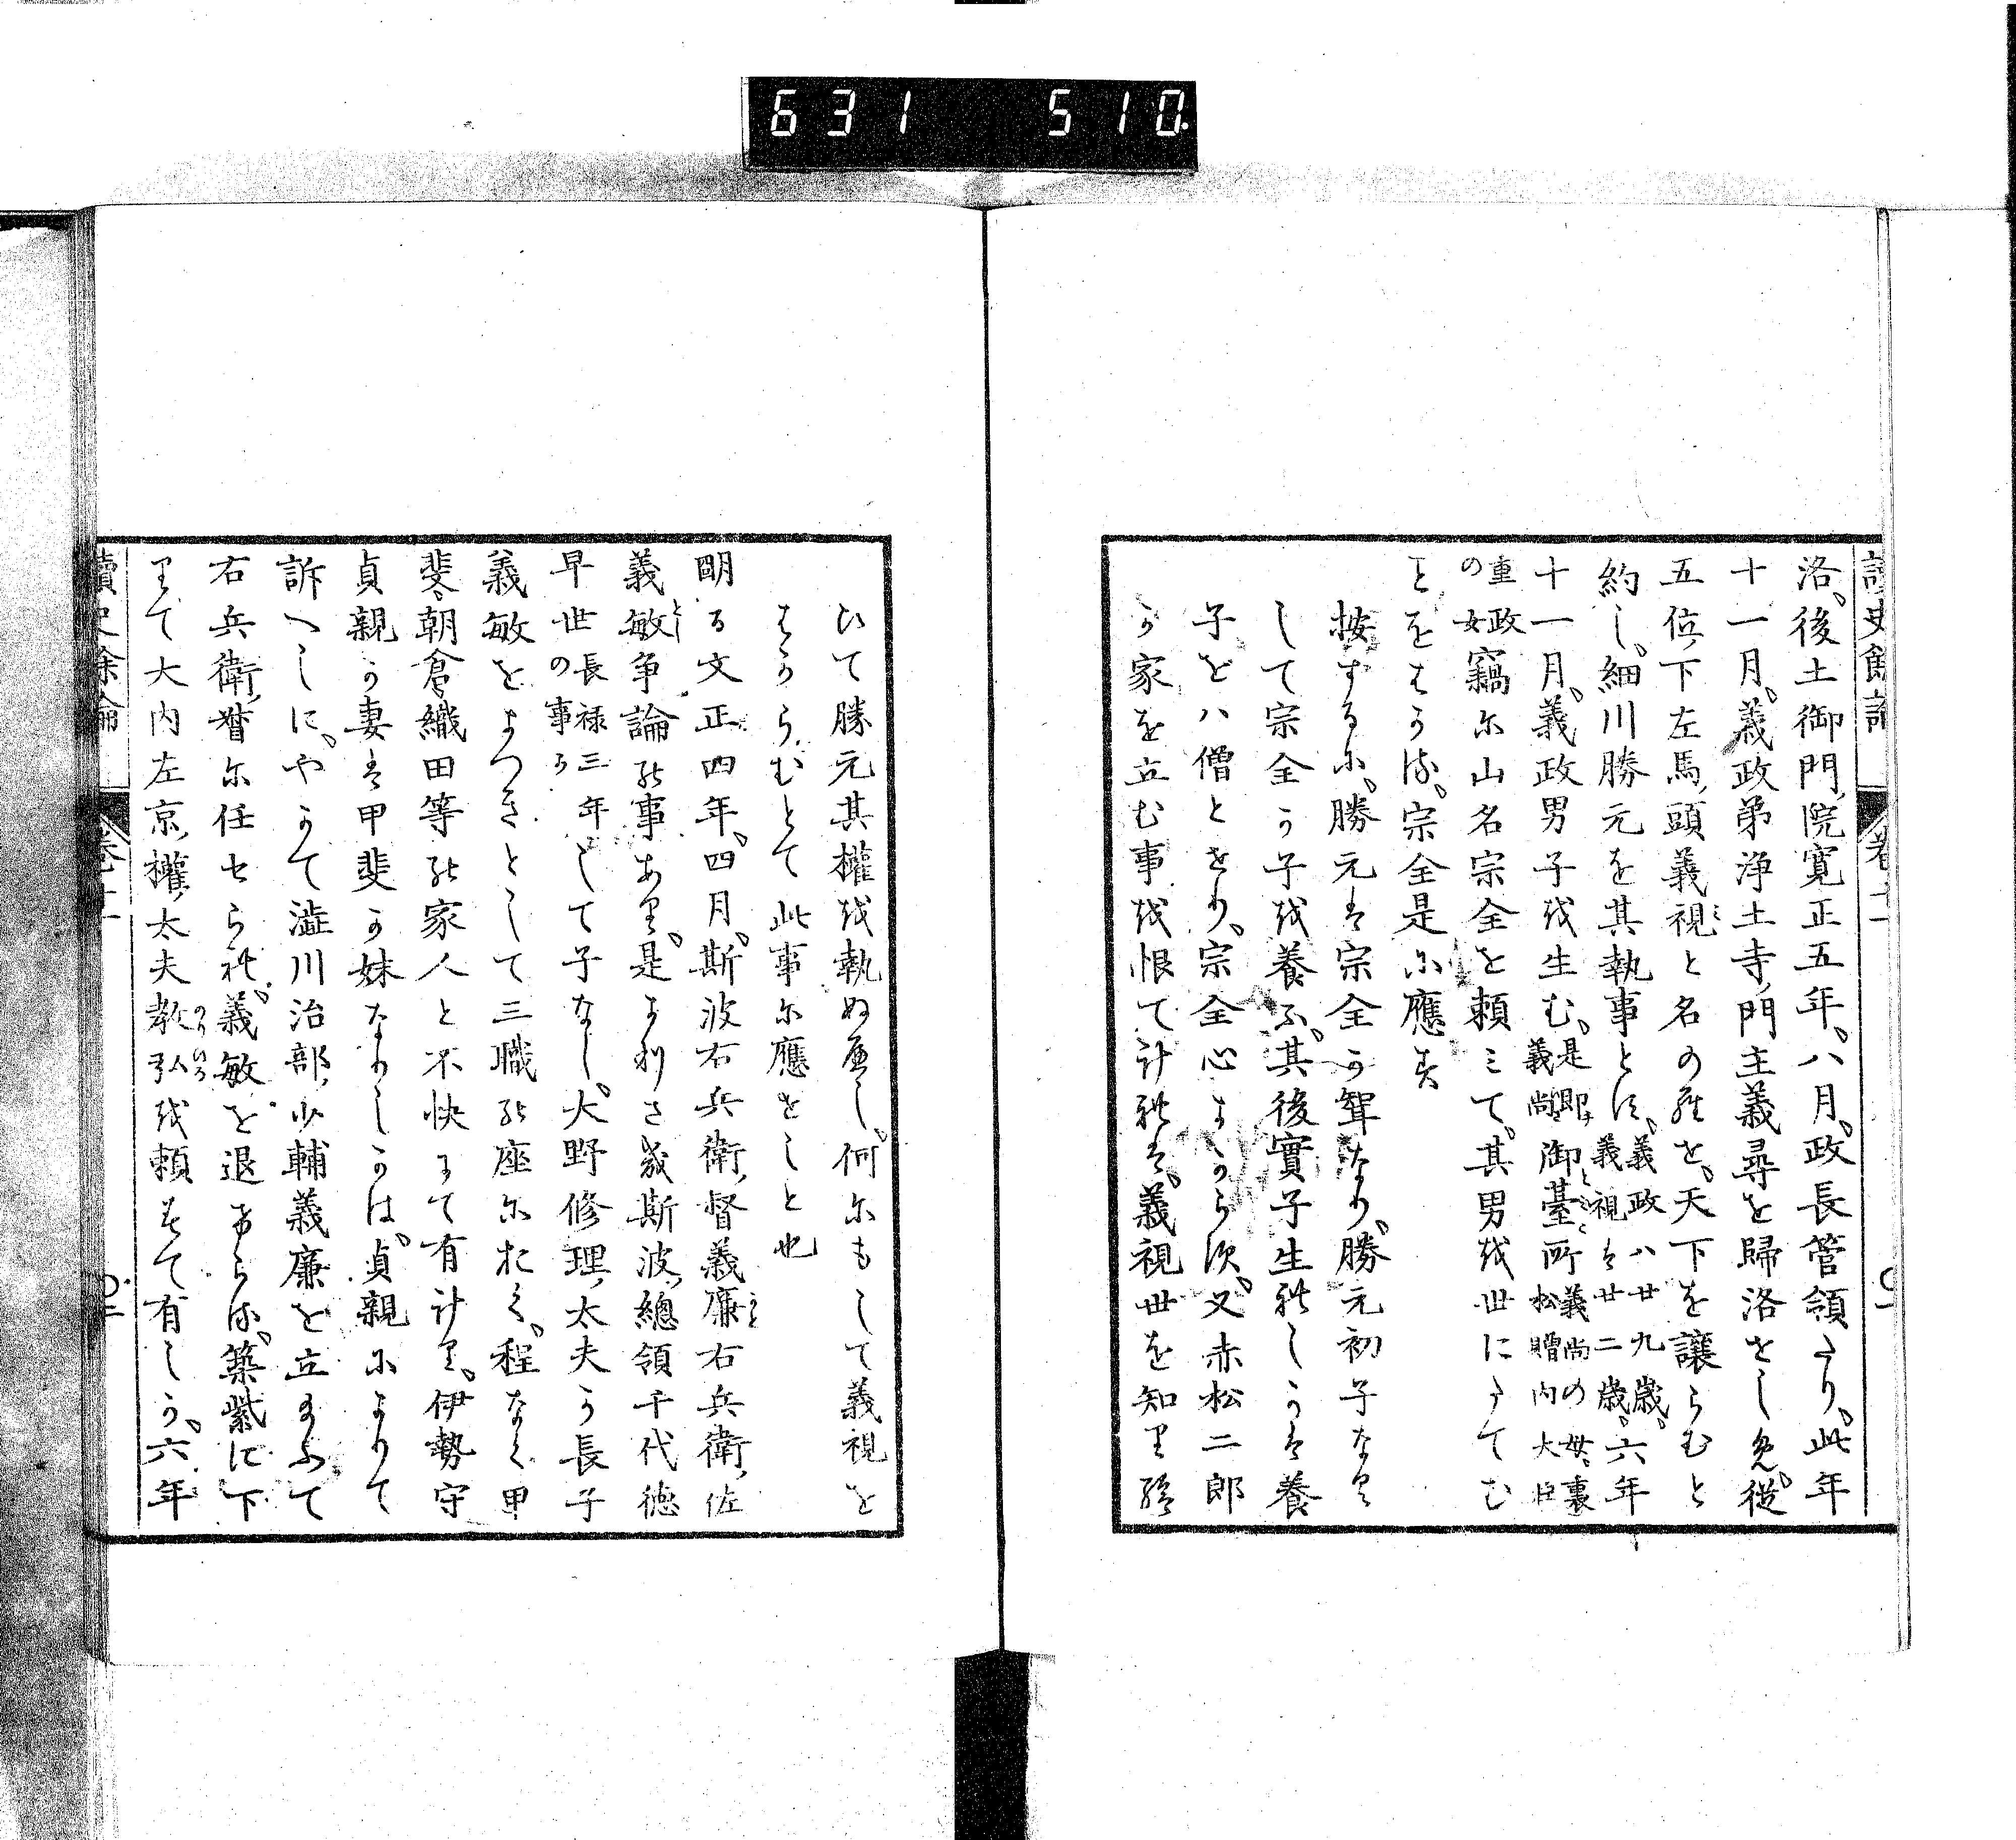 631 510
讀史餘論 卷十一
洛、後土御門院寛正五年、八月、政長管領たり、此年
十一月、義政弟浄土寺門主義尋を歸洛せしめ、從
五位下左馬頭義視と名のらせ、天下を讓らむと
約し、細川勝元を其執事とす、義政ハ廿九歳、義視は廿二歳、六年
十一月、義政男子を生む、是即義尚、御臺所義尚の母、裏松贈内大臣
重政の女竊に山名宗全を頼ミて、其男を世にたてむ
ことをはかる、宗全是に應す
按するに、勝元は宗全か聟なり、勝元初子なく
して宗全か子を養ふ、其後實子生れしかは養
子をハ僧とせり、宗全心よからす、又赤松二郎
か家を立む事を恨て計れは、義視世を知り給
ひて勝元其權を執ぬへし、何にもして義視を
はからむとて此事に應せしと也
明る文正四年、四月、斯波右兵衛督義廉右兵衛佐
義敏争論の事あり、是より先斯波總領千代徳
早世長禄三年の事かして子なし、大野修理太夫か長子
義敏をよつきとして三職の座におく、程なく甲
斐朝倉織田等の家人と不快にて有計り、伊勢守
貞親か妻は甲斐か妹なりしかは、貞親によりて
訴へしに、やかて澁川治部少輔義廉を立られて
右兵衛督に任せられ、義敏を退けらる、築紫に下
りて大内左京權太夫教弘を頼みて有しか、六年
讀史餘論 卷十一